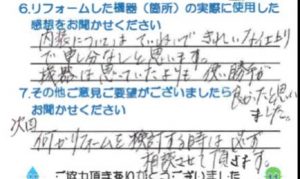 6.リフォームした機器（箇所）の実際に使用した
感想をお聞かせください
内装についてはていねいできれいな仕上り
で申し分なしと思います。
機器は思っていたよりも使い勝手が
良かったと思い
ました。
7.その他ご意見ご要望がございましたら
お聞かせください
次回
何かリフォームを検討する時は必ず
相談させて頂きます。
ご協力頂きありがとうございました